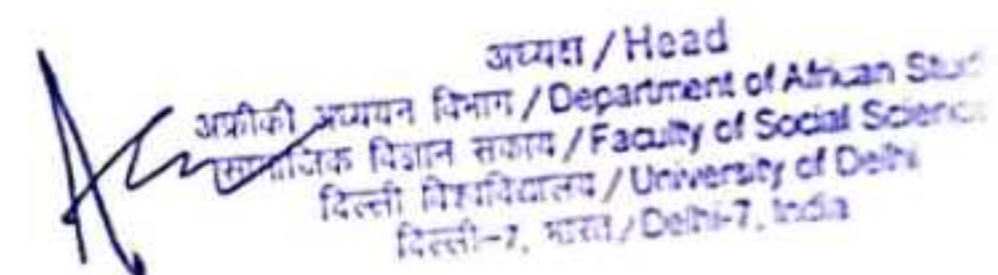 अध्यक्ष / Head
अफ्रीकी अध्ययन विभाग / Department of African Stud
सामाजिक विज्ञान संकाय / Faculty of Social Science
दिल्ली विश्वविद्यालय / University of Delhi
दिल्ली-7, भारत / Delhi-7, India